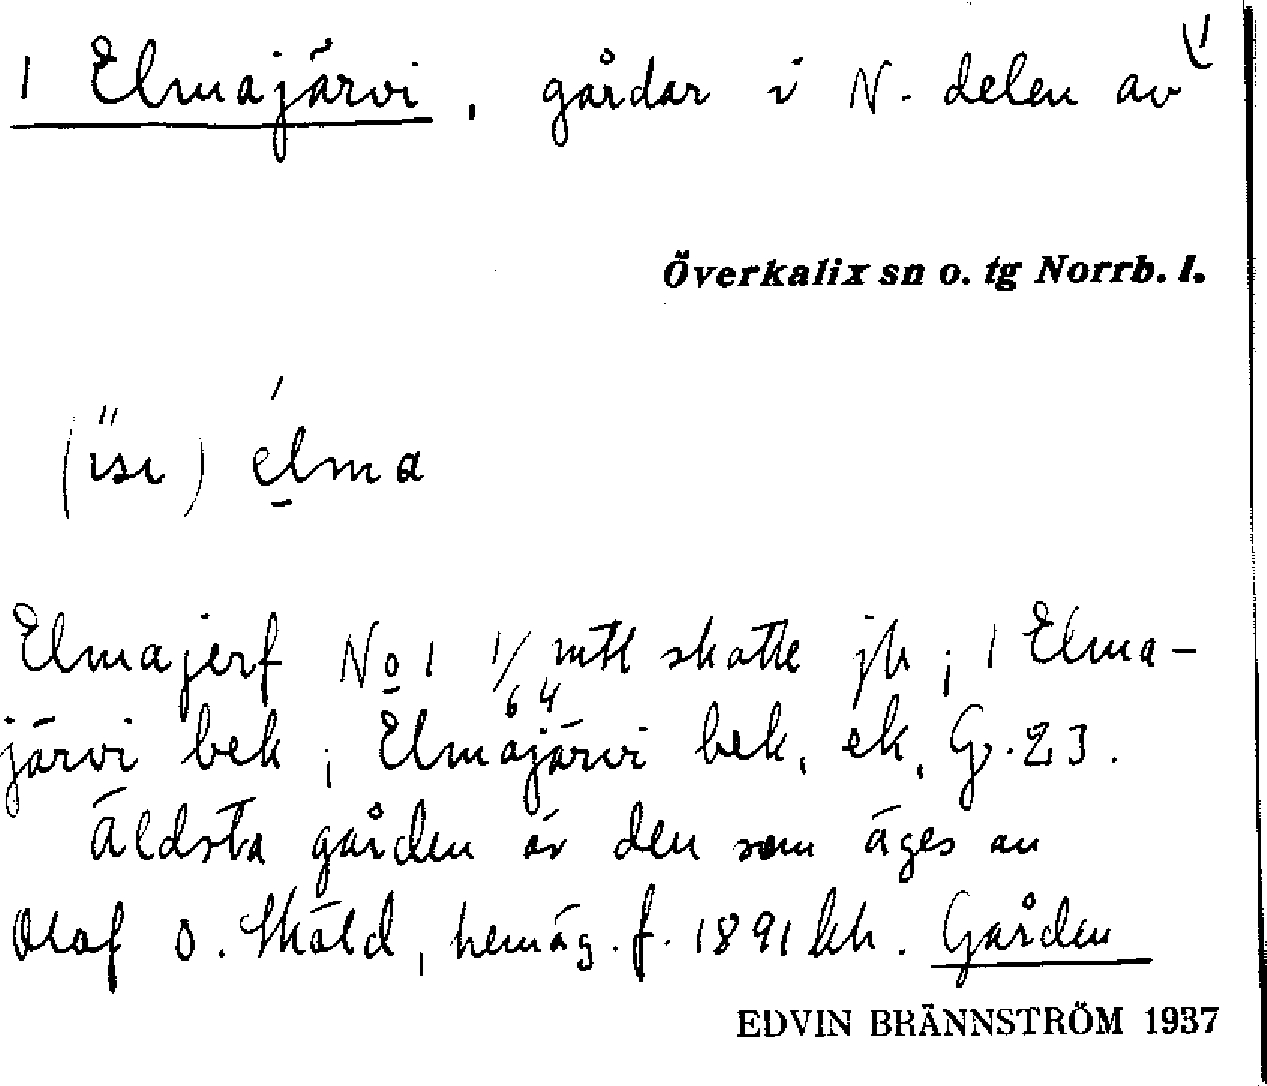 1 Elmajärvi, gårdar i N. delen av
Överkalix sn o. tg Norrb. l.
(ïsı) élma
Elmajerf No 1 1/64 mtl skatte jb; 1 Elma-
järvi bek; Elmajärvi bek, ek, G. 23.
Äldsta gården är den som äges av
Olof O. Sköld, hemäg. f. 1891 kb. Gården
EDVIN BRÄNNSTRÖM 1937